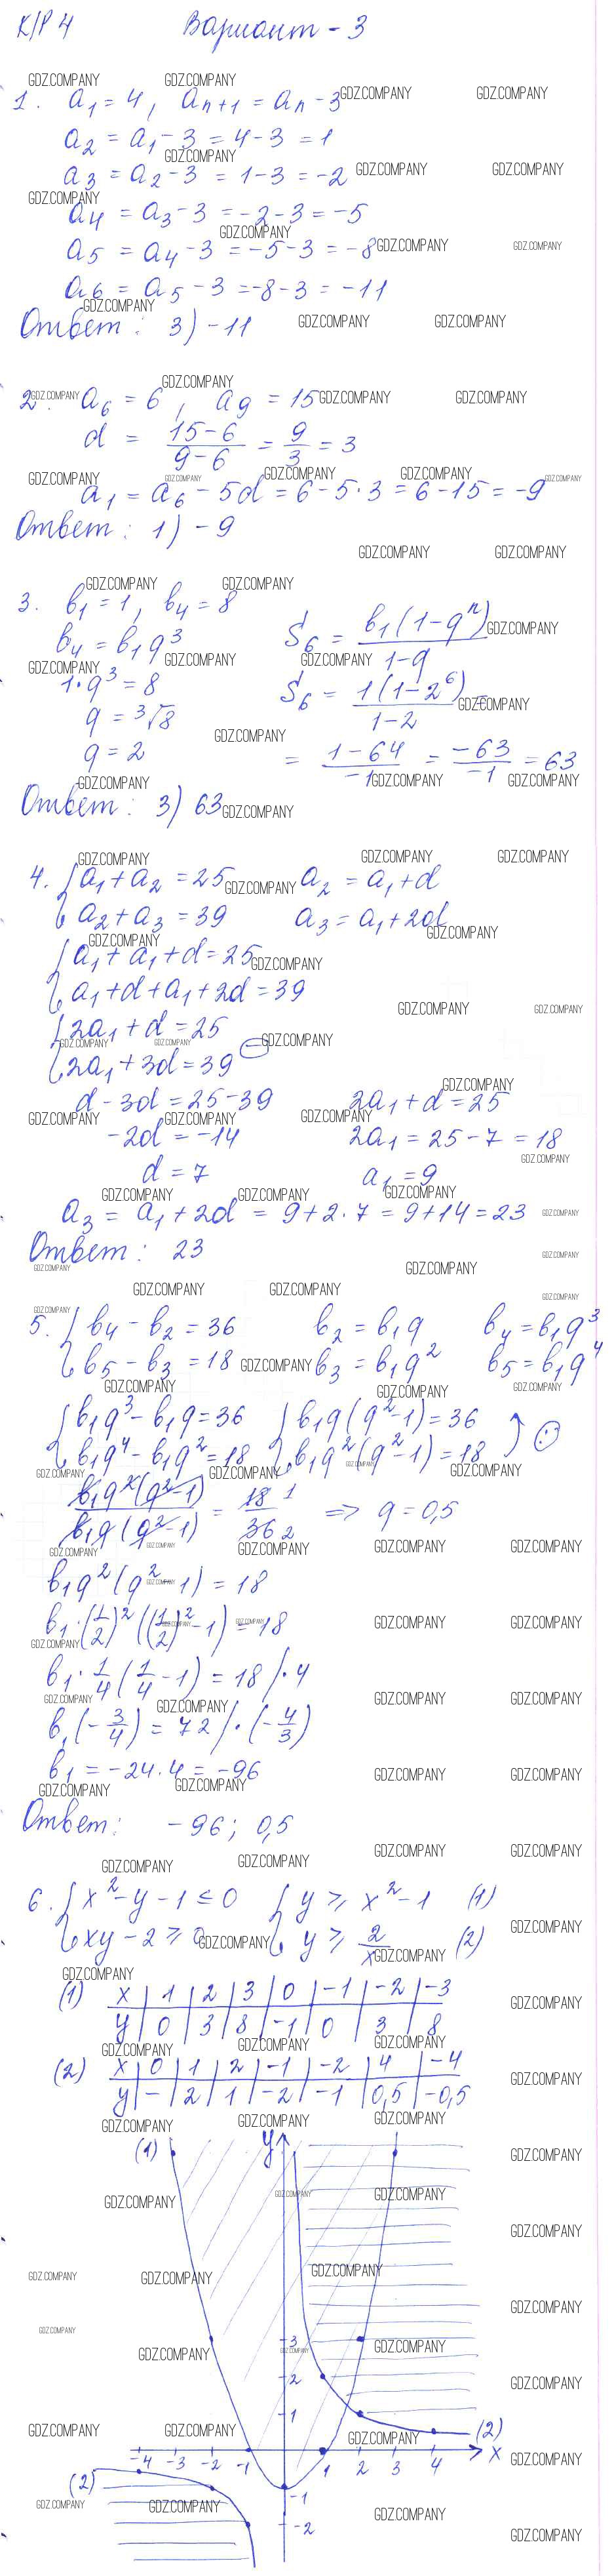 К/Р 4 Вариант - 3
1. a₁ = 4, aₙ₊₁ = aₙ - 3
a₂ = a₁ - 3 = 4 - 3 = 1
a₃ = a₂ - 3 = 1 - 3 = -2
a₄ = a₃ - 3 = -2 - 3 = -5
a₅ = a₄ - 3 = -5 - 3 = -8
a₆ = a₅ - 3 = -8 - 3 = -11
Ответ: 3) -11
2. a₆ = 6, a₉ = 15
d = (15 - 6)/(9 - 6) = 9/3 = 3
a₁ = a₆ - 5d = 6 - 5·3 = 6 - 15 = -9
Ответ: 1) -9
3. b₁ = 1, b₄ = 8
b₄ = b₁q³ S₆ = b₁(1 - qⁿ)/(1 - q)
1·q³ = 8 S₆ = 1(1 - 2⁶)/(1 - 2) =
q = ³√8
q = 2 = (1 - 64)/(-1) = -63/-1 = 63
Ответ: 3) 63
4. { a₁ + a₂ = 25 a₂ = a₁ + d
{ a₂ + a₃ = 39 a₃ = a₁ + 2d
{ a₁ + a₁ + d = 25
{ a₁ + d + a₁ + 2d = 39
{ 2a₁ + d = 25
{ 2a₁ + 3d = 39 ⊖
d - 3d = 25 - 39 2a₁ + d = 25
-2d = -14 2a₁ = 25 - 7 = 18
d = 7 a₁ = 9
a₃ = a₁ + 2d = 9 + 2·7 = 9 + 14 = 23
Ответ: 23
5. { b₄ - b₂ = 36 b₂ = b₁q b₄ = b₁q³
{ b₅ - b₃ = 18 b₃ = b₁q² b₅ = b₁q⁴
{ b₁q³ - b₁q = 36 { b₁q(q² - 1) = 36
{ b₁q⁴ - b₁q² = 18 { b₁q²(q² - 1) = 18 ⊙
b₁q²(q² - 1)/b₁q(q² - 1) = 18 1/36 2 => q = 0,5
b₁q²(q² - 1) = 18
b₁·(1/2)²((1/2)² - 1) = 18
b₁·1/4(1/4 - 1) = 18 /·4
b₁(-3/4) = 72 /·(-4/3)
b₁ = -24·4 = -96
Ответ: -96; 0,5
6. { x² - y - 1 ≤ 0 { y ≥ x² - 1 (1)
{ xy - 2 ≥ 0 { y ≥ 2/x (2)
(1) x | 1 | 2 | 3 | 0 | -1 | -2 | -3
y | 0 | 3 | 8 | -1 | 0 | 3 | 8
(2) x | 0 | 1 | 2 | -1 | -2 | 4 | -4
y | - | 2 | 1 | -2 | -1 | 0,5 | -0,5
(1) y
3
2
1
(2)
-4 -3 -2 -1 1 2 3 4 x
(2)
-1
-2
GDZ.COMPANY